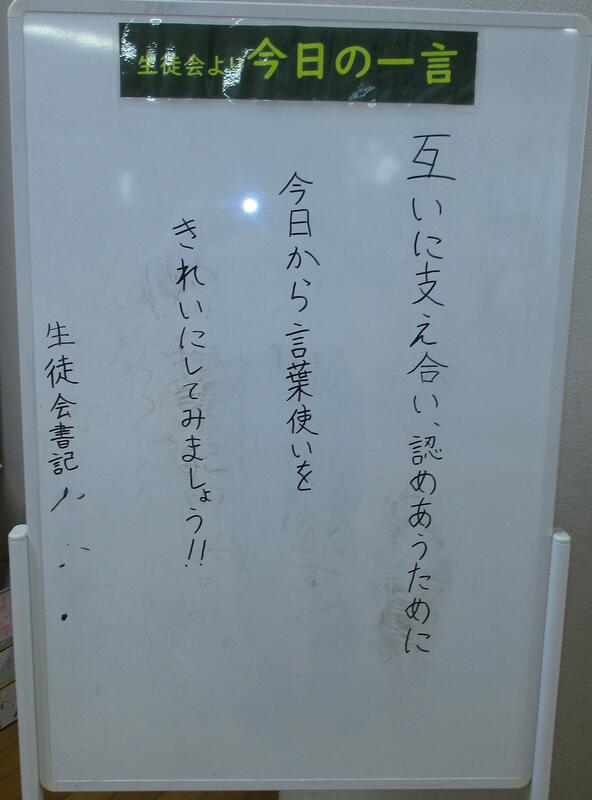 生徒会より 今日の一言
互いに支え合い、認めあうために
今日から言葉使いを
きれいにしてみましょう!!
生徒会書記